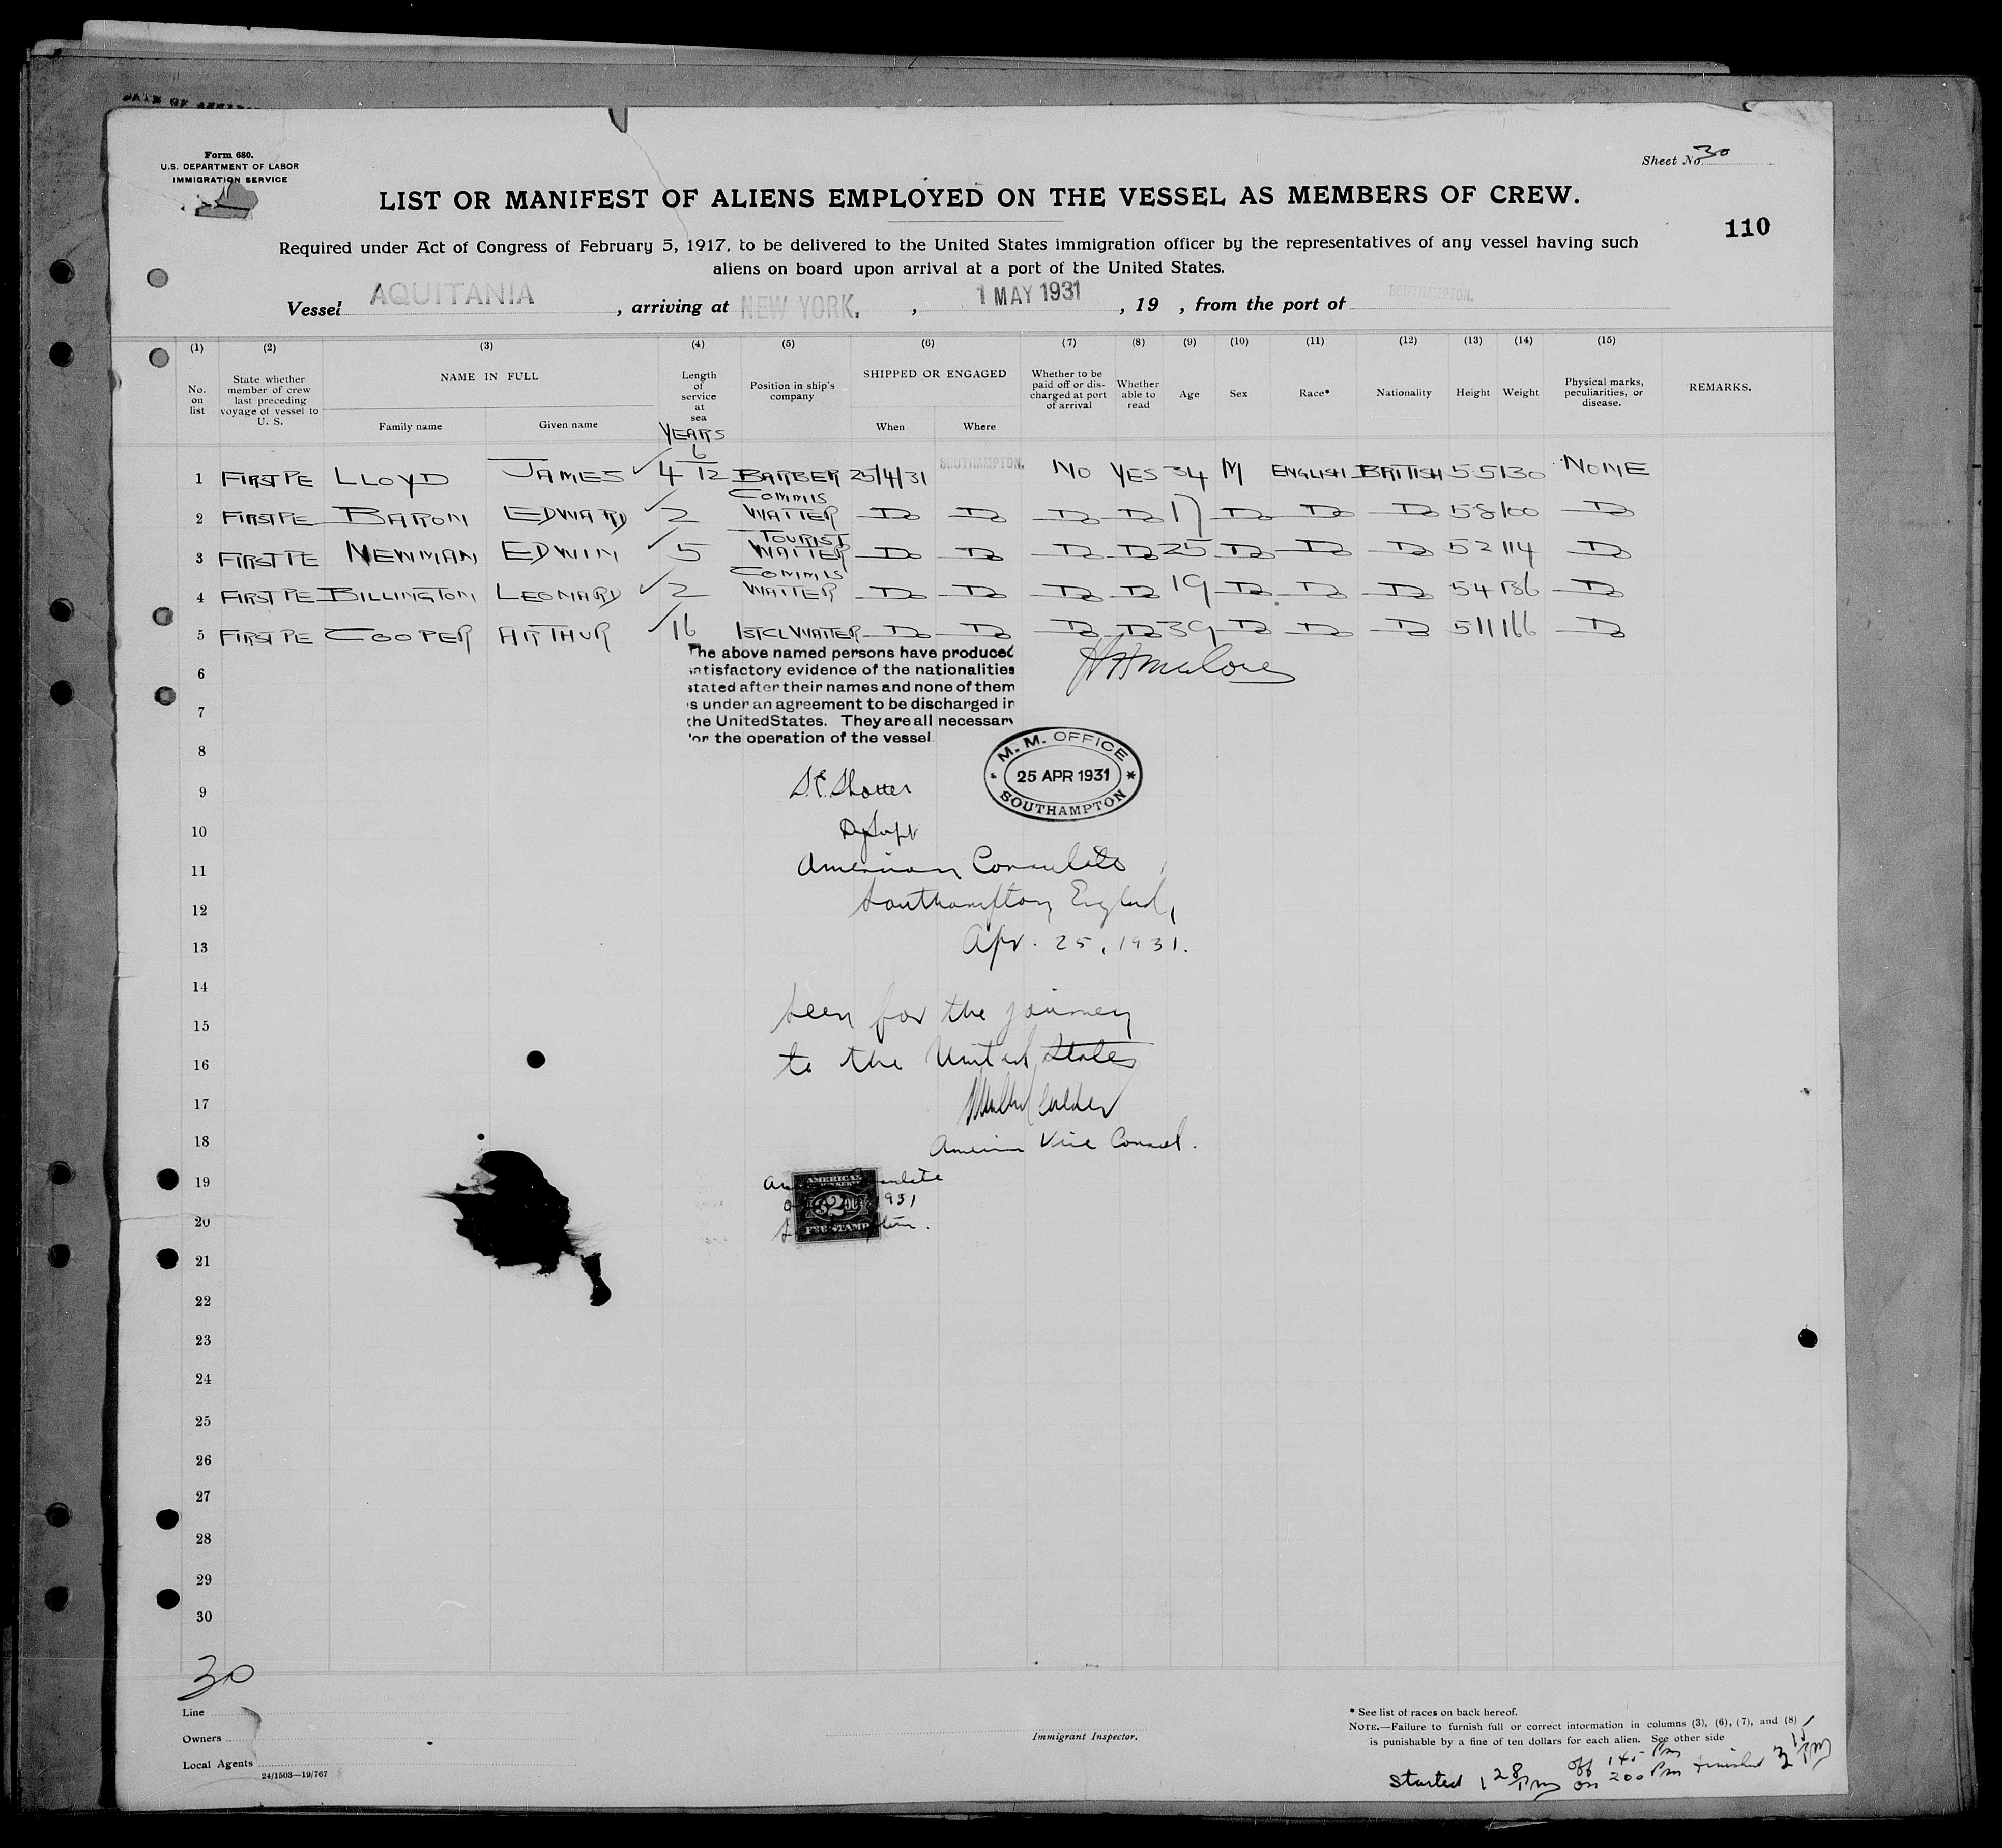 DATE OF
Form 680.
U.S. DEPARTMENT OF LABOR
IMMIGRATION SERVICE
Sheet No. 30
LIST OR MANIFEST OF ALIENS EMPLOYED ON THE VESSEL AS MEMBERS OF CREW.
110
Required under Act of Congress of February 5, 1917, to be delivered to the United States immigration officer by the representatives of any vessel having such
aliens on board upon arrival at a port of the United States.
Vessel AQUITANIA , arriving at NEW YORK. , 1 MAY 1931 , 19 , from the port of SOUTHAMPTON.
(1) (2) (3) (4) (5) (6) (7) (8) (9) (10) (11) (12) (13) (14) (15)
No. on list
State whether member of crew last preceding voyage of vessel to U. S.
NAME IN FULL
Family name
Given name
Length of service at sea
YEARS
Position in ship's company
SHIPPED OR ENGAGED
When
Where
Whether to be paid off or discharged at port of arrival
Whether able to read
Age
Sex
Race*
Nationality
Height
Weight
Physical marks, peculiarities, or disease.
REMARKS.
1 FIRST PE LLOYD JAMES ✓ 4 6/12 BARBER 25/4/31 SOUTHAMPTON. NO YES 34 M ENGLISH BRITISH 5 5 130 NONE
2 FIRST PE BARON EDWARD ✓ 2 COMMIS WAITER Do Do Do Do 17 Do Do Do 5 8 100 Do
3 FIRST PE NEWMAN EDWIN ✓ 5 TOURIST WAITER Do Do Do Do 25 Do Do Do 5 2 114 Do
4 FIRST PE BILLINGTON LEONARD ✓ 2 COMMIS WAITER Do Do Do Do 19 Do Do Do 5 4 136 Do
5 FIRST PE COOPER ARTHUR ✓ 16 1ST CL WAITER Do Do Do Do 39 Do Do Do 5 11 166 Do
The above named persons have produced
satisfactory evidence of the nationalities
stated after their names and none of them
is under an agreement to be discharged in
the United States. They are all necessary
for the operation of the vessel.
6
7
8
M. M. OFFICE
25 APR 1931
SOUTHAMPTON
9
10 Dy Supt
11 American Consulate
12 Southampton, England,
13 Apr. 25, 1931.
14
15 Seen for the journey
16 to the United States
17
18 American Vice Consul.
19
AMERICAN
$2.00
FEE STAMP
1931
20
21
22
23
24
25
26
27
28
29
30
30
Line
Owners
Local Agents
24/1503—19/767
Immigrant Inspector.
* See list of races on back hereof.
NOTE.—Failure to furnish full or correct information in columns (3), (6), (7), and (8)
is punishable by a fine of ten dollars for each alien. See other side
started 1 28 PM off 1 45 PM on 2 00 PM finished 3 15 PM